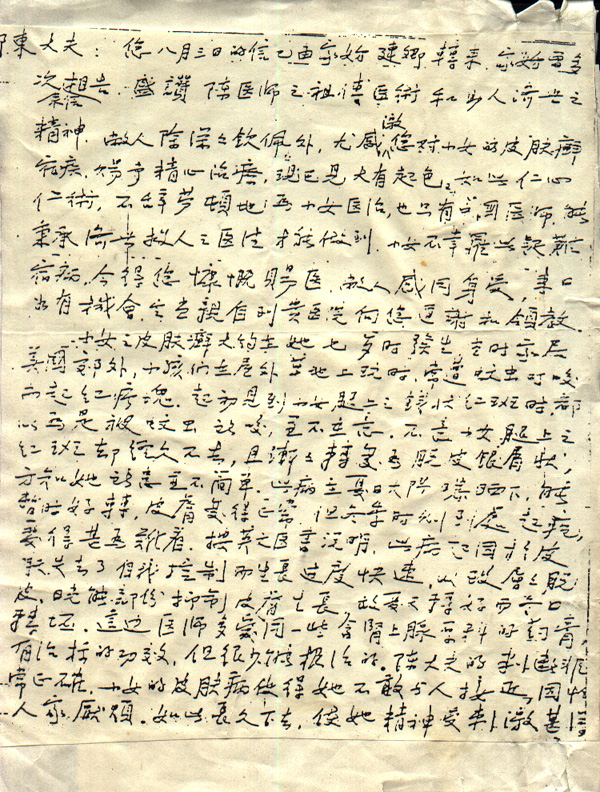 陳大夫：您八月三日的信已由家妹建卿轉来,家妹曾多
次相告 盛讚 陳医师之祖傳医術和助人濟世之
来信
精神.敝人除深深钦佩外,尤感激您对小女的皮肤癣
宿疾,赐予精心治疗,现已見大有起色.如此仁心
仁術,不辞劳顿地为小女医治,也只有 國医师能
秉承濟世救人之医 才能做到.小女不幸罹此疑難
宿病,今得您慷慨賜医,敝人感同身受,来日
如有机会,定当親自到贵医 向您道谢和領教.
小女之皮肤癣大约在她七岁时發生,当时家居
美國郊外,小孩们在屋外草地上玩时,常遭蚊虫叮咬
而起红疹塊.起初見到小女腿上之錢状红斑时都
以为是被蚊虫所咬,並不在意.不意小女腿上之
红斑却经久不去,且渐渐转变为脱皮银屑状,
方知她所患並不简单.此病在夏日太阳曝晒下,能
暂时好转,皮膚变得正常.但冬季时则到處起疤,
变得甚为难看.据英文医書说明,此病 因於皮
肤失去了自我控制而生長过度快速,以致層層脱
皮.日晒能部份抑制皮膚生長,故夏天轉好而冬日
轉坏.這边医师多爱用一些含腎上腺 的葯膏
有治標的功效,但很少能根治的.陳大夫的判断非
常正确.小女的皮肤病使得她不敢与人接近,因怕
人家厭煩.如此長久下去,使她精神受刺激甚